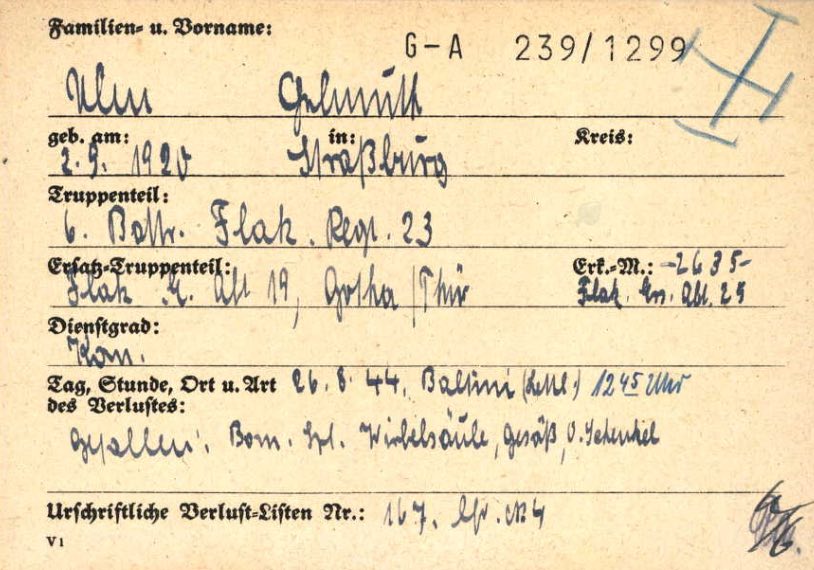 Familien- u. Vorname:
G-A 239/1299
Ulm Helmuth
geb. am: in: Kreis:
2. 9. 1920 Straßburg
Truppenteil:
6. Battr. Flak. Regt. 23
Ersatz-Truppenteil: Erk.-M.: -2635-
Flak. E. Abt 19, Gotha/Thür Flak. Ers. Abt. 25
Dienstgrad:
Kan.
Tag, Stunde, Ort u. Art 26. 8. 44, Baltini (Lettl.) 12 45 Uhr
des Verlustes:
Gefallen. Bom. Spl. Wirbelsäule, Gesäß, O. Schenkel
Urschriftliche Verlust-Listen Nr.: 167. Nr. 4
V1